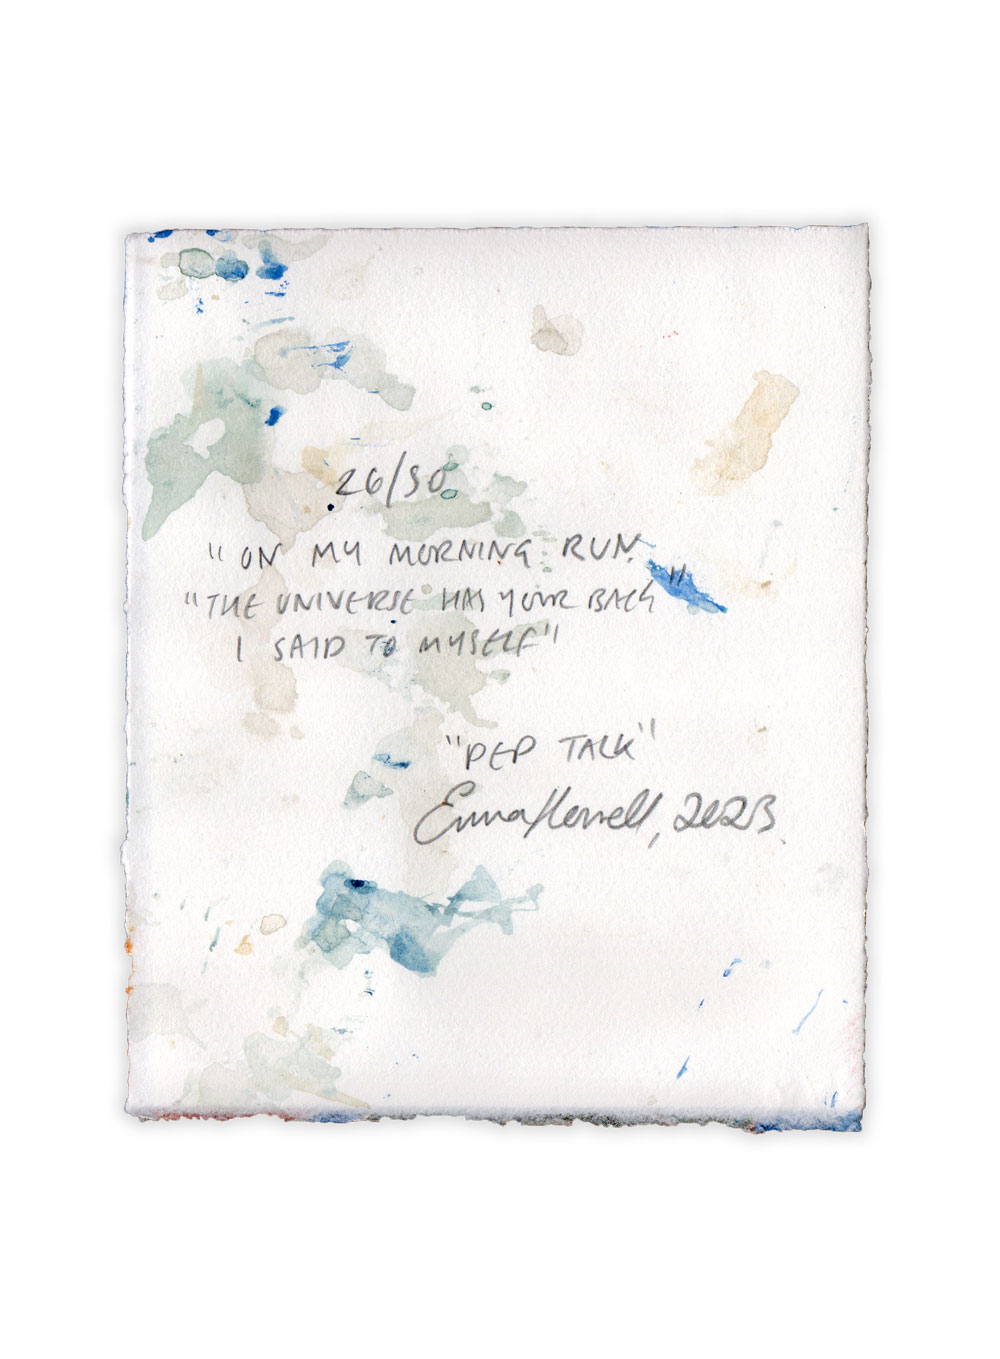 26/30
"ON MY MORNING RUN
"THE UNIVERSE HAS YOUR BACK"
I SAID TO MYSELF"
"PEP TALK"
Emma Howell, 2023